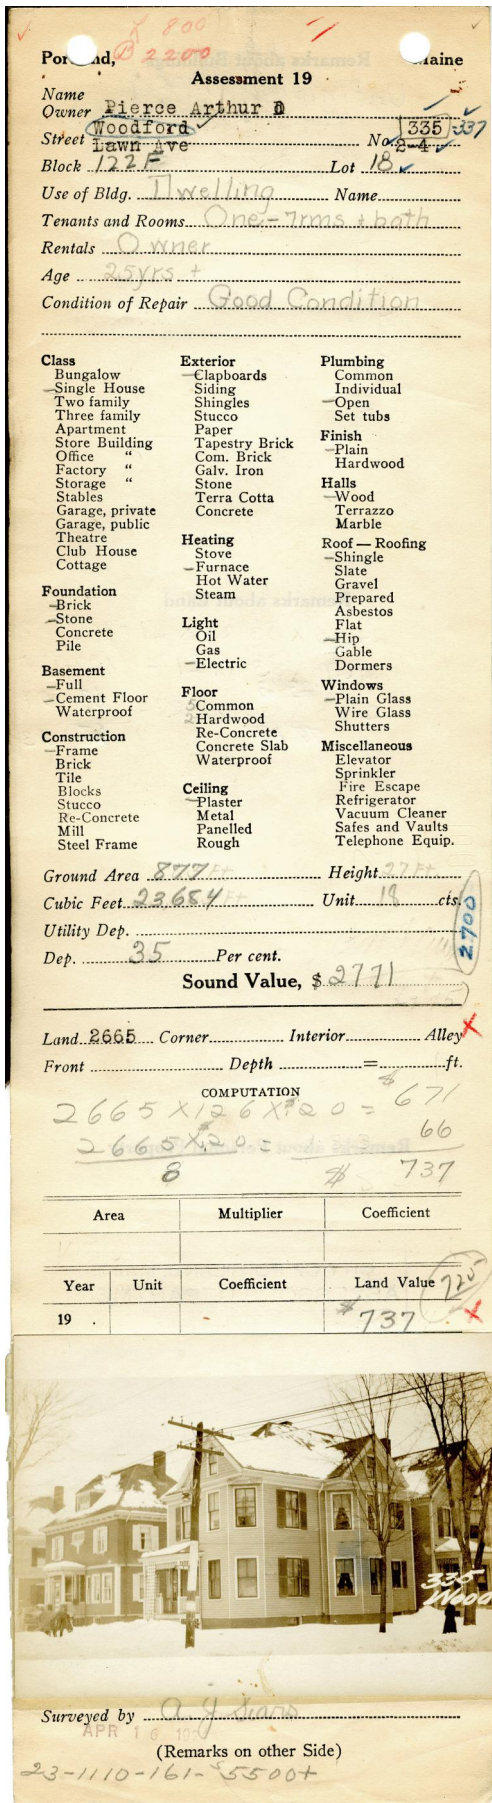 L 800
B 2200
Portland, Maine
Assessment 19
Name
Owner Pierce Arthur D
Woodford 335 337
Street Lawn Ave No. 2-4
Block 122F Lot 18
Use of Bldg. Dwelling Name
Tenants and Rooms One-7rms + bath
Rentals Owner
Age 25yrs +
Condition of Repair Good Condition
Class
Bungalow
Single House
Two family
Three family
Apartment
Store Building
Office "
Factory "
Storage "
Stables
Garage, private
Garage, public
Theatre
Club House
Cottage
Foundation
Brick
Stone
Concrete
Pile
Basement
Full
Cement Floor
Waterproof
Construction
Frame
Brick
Tile
Blocks
Stucco
Re-Concrete
Mill
Steel Frame
Exterior
Clapboards
Siding
Shingles
Stucco
Paper
Tapestry Brick
Com. Brick
Galv. Iron
Stone
Terra Cotta
Concrete
Heating
Stove
Furnace
Hot Water
Steam
Light
Oil
Gas
Electric
Floor
5 Common
2 Hardwood
Re-Concrete
Concrete Slab
Waterproof
Ceiling
Plaster
Metal
Panelled
Rough
Plumbing
Common
Individual
Open
Set tubs
Finish
Plain
Hardwood
Halls
Wood
Terrazzo
Marble
Roof — Roofing
Shingle
Slate
Gravel
Prepared
Asbestos
Flat
Hip
Gable
Dormers
Windows
Plain Glass
Wire Glass
Shutters
Miscellaneous
Elevator
Sprinkler
Fire Escape
Refrigerator
Vacuum Cleaner
Safes and Vaults
Telephone Equip.
Ground Area 877 Ft Height 27 Ft.
Cubic Feet 23684 Ft Unit 18 cts.
Utility Dep.
2700
Dep. 35 Per cent.
Sound Value, $ 2771
Land 2665 Corner Interior Alley
Front Depth = ft.
COMPUTATION
2665 X 126 X $.20 = $ 671
2665 X $.20 = 66
8 $ 737
Area Multiplier Coefficient
Year Unit Coefficient Land Value 725
19 . $ 737
335
Wood
Surveyed by A J Sears
APR 16
(Remarks on other Side)
23-1110-161-$5500+